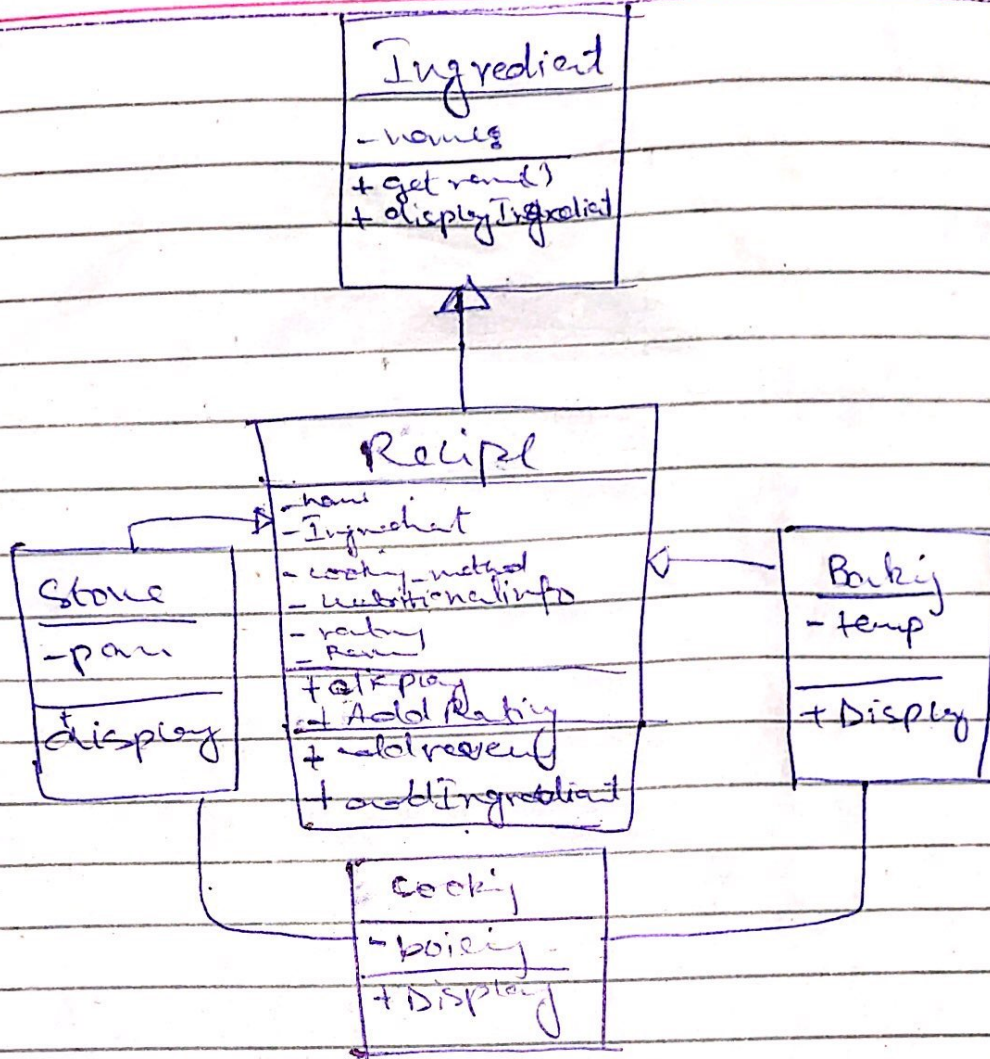 Ingredient
- name
+ get name()
+ displayIngredient
Recipe
- name
- Ingredient
- cooking_method
- nutritionalinfo
- rating
+ display
+ Add Rating
+ addreview
+ addIngredient
Stove
- pan
+ display
Baking
- temp
+ Display
Cooking
- boiling
+ Display